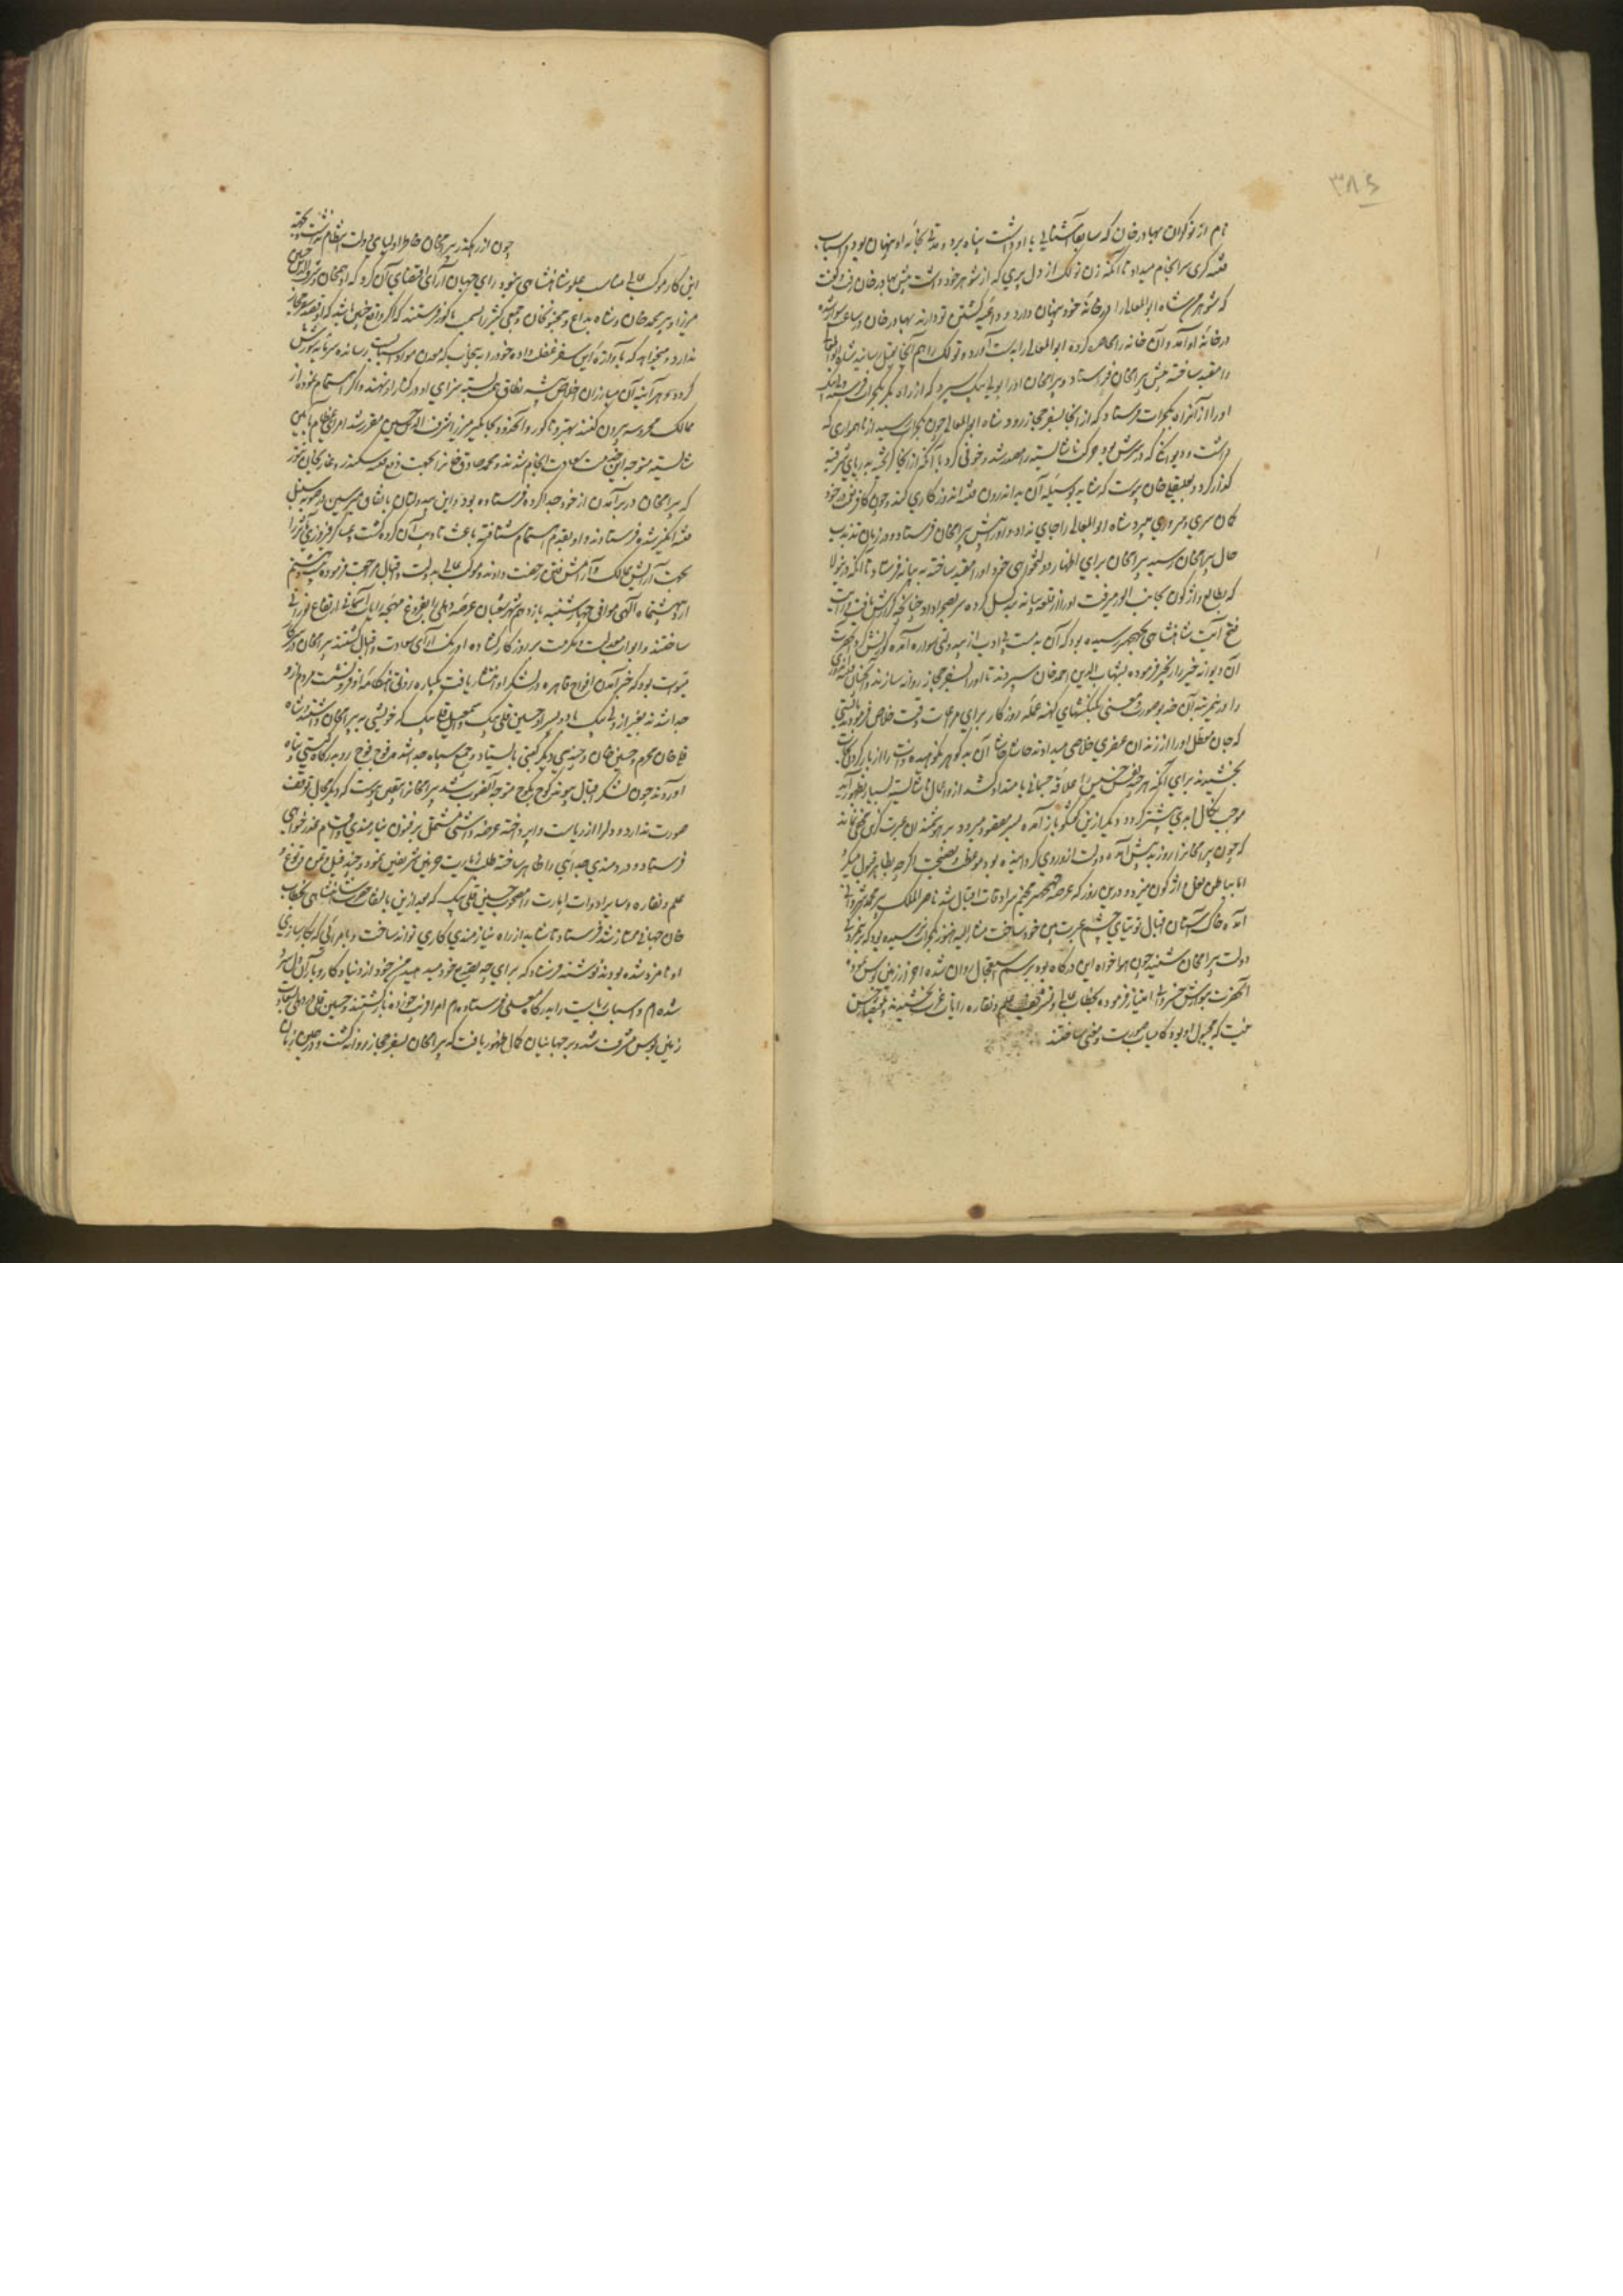 ۳۸۶
نام از نوکران بهادر خان که سابقا آشنایی با او داشت پناه برد و مدتی بخانه او پنهان بود و اسباب
فتنه گری سرانجام میداد تا آنکه زن تولک از دل پری که از شوهر خود داشت پیش بهادر خان رفت و گفت
که شوهر من شاه ابوالمعالی را در خانه خود پنهان دارد و داعیه کشتن تو دارند بهادر خان در ساعت سوار شده
در خانه او آمد و آن خانه را محاصره کرده ابوالمعالی را بدست آورد و تولک را هم آنجا بقتل رسانید شاه ابوالمعالی
را مقید ساخته پیش بیرام خان فرستاد و بیرام خان او را بولی بیک سپرد که از راه بکر بگجرات فرستد ولی بیک
او را از آنراه بگجرات فرستاد که از آنجا بسفر حجاز رود و شاه ابوالمعالی چون بگجرات رسید از ناهمواری که
داشت و دیوانگی که در سرش بود حرکت ناشایسته را مصدر شد و خونی کرد تا آنکه از آنجا گریخته بدیار شرقیه
گذار کرد و بعلیقلی خان پیوست که شاید بوسیله آن بد اندرون فتنه اندوز کاری کند و چون
گمان سری و سروری میبرد شاه ابوالمعالی را جای نداد و او را پیش بیرام خان فرستاد و در زمان تذبذب
حال بیرام خان رسید بیرام خان برای اظهار دولتخواهی خود او را مقید ساخته به بیانه فرستاد تا آنکه درینولا
که بطالع واژگون بجانب الور میرفت او را از قلعه بیانه یله کرده سر بصحرا داد چنانچه گزارش یافت
فتح آیت شاهنشاهی بجهجر رسیده بود که آن بدمست بی ادب از بیدولتی سواره آمده کورنش کرد حضرت
آن دیوانه خیره را زنجیر فرموده بشهاب الدین احمد خان سپردند تا او را بسفر حجاز روانه سازند
را در ضمیر آن خدیو صورت و معنی بکینگشهای کهنه عمله روزگار برای مرمات وقت خلاص فرمودند بایستی
که جان معطل او را از زندان عنصری خلاصی میدادند حاشا حاشا آن بدگوهر نکوهیده ذات را از بار گردن
بخشیدند برای آنکه هر چند نفس خسیس را علاقه جسمانی بامتداد کشد از و اعمال ناشایسته بسیار بظهور آید
موجب نکال ابدی بیشتر گردد دیگر ازین گفتگو باز آمده بسر مقصود میرود بر هوشمندان عبرت گزین مخفی نماند
که چون بیرام خانرا روز بد پیش آمده دولت ازو روی گردانیده بود موعظت و نصیحت اگرچه بظاهر قبول میکرد
اما بباطن نعل واژگون میزد و درین روز که عرصه جهجر مخیم سرادقات اقبال شد ناصر الملک پیر محمد شروانی
آمده خاک آستان اقبال توتیای چشم عبرت بین خود ساخت مشار الیه هنوز بگجرات نرسیده بود که خبر
دولت بیرام خان شنید چون هواخواه این درگاه بود برسم استعجال روان شده احراز زمین بوس نمود
آنحضرت بنوازش خسروانه امتیاز فرموده بخطاب خانی و تشریف علم و نقاره رایات عزت بخشیدند و بمقتضای حسن
نیت که مجبول او بود کامیاب صورت و معنی ساختند
چون از رهگذر بیرام خان خاطر اولیای دولت
این کار موکب عالی مناسب جلو شاهنشاهی نبود رای جهان آرای اقتضای آن کرد که ادهم خان و شرف الدین حسین
میرزا و پیر محمد خان و شاه بداغ و مجنون خان و جمعی کثیر را بسمت ناگور فرستند که اگر واقع چنین باشد که او قصد سفر حجاز
ندارد و میخواهد که به آوازه این سفر غفلت داده خود را به پنجاب که معدن مواد اسبابست رسانده سرمایه شورش
گردد هر آینه آن مبارزان اخلاص پیشه نطاق همت بسته سزای او در کنار او نهند و اگر اهتمام نموده از
ممالک محروسه بیرون کنند بهتر و ناگور و آنحدود بجاگیر میرزا شرف الدین حسین مقرر شد امرای عظام بآیین
شایسته متوجه این خدمت سعادت انجام شدند و محمد صادق خانرا بجهت دفع فتنه سکندر و غازیخان تنور
که بیرام خان در برآمدن از خود جدا کرده فرستاده بود و این بیدولتان باتفاق میر سین در صوبه سنبل
فتنه انگیز شده فرستادند و او بقدم اهتمام شتافته باعث تادیب آن گروه گشت و عساکر فیروزی اثر را
بجهت آرایش ممالک و آرامش فتن رخصت دادند و موکب عالی بدولت و اقبال مراجعت فرموده بیست و پنجم
اردیبهشت ماه الهی موافق چهارشنبه یازدهم شهر شعبان عرصه دهلی را بفروغ مهچه رایات آسمانی ارتفاع نورانی
ساختند و ابواب معدلت و مکرمت بر روزگار گشاده اورنگ آرای سعادت و اقبال گشتند بیرام خان در سرکار
میوات بود که خبر آمدن افواج قاهره در لشکر او انتشار یافت یکباره رونق هنگامه او فرو نشست مردم از و
جدا شدند بغیر از ولی بیک با دو پسر او حسین قلی بیک و اسمعیل قلی بیک که خویشی به بیرام خان داشتند و شاه
قلی خان محرم و حسین خان و چندی دیگر کسی نایستاد و جمع سپاه جدا شده فوج فوج رو بدرگاه گیتی پناه
آوردند چون لشکر اقبال پیوند کوچ بکوچ متوجه آنصوب شد بیرام خانرا یقین پیوست که دیگر مجال توقف
صورت ندارد و دل را از ریاست وا پرداخته عرضه داشتی مشتمل بر فنون نیازمندی و اقسام عذرخواهی
فرستاد و دردمندی جدایی را ظاهر ساخته طلب زیارت حرمین شریفین نمود و چند فیل و تمن توغ و
علم و نقاره و سایر ادوات امارت را مصحوب حسین قلی بیک که بعد ازین بالتفات حضرت شاهنشاهی بخطاب
خان جهانی ممتاز شد فرستاد تا شاید از راه نیازمندی کاری تواند ساخت و بامرائی که بکارسازی
او نامزد شده بودند نوشته فرستاد که برای چه تصدیع خود میدهید من خود از دنیا و کار و بار آن دل سرد
شده ام و اسباب ریاست را بدرگاه معلی فرستاده ام امرا فریب خورده باز گشتند و حسین قلی در دهلی بسعادت
زمین بوس مشرف شد و بر جهانیان کمال ظهور یافت که بیرام خان بسفر حجاز روانه گشت و درین زمان